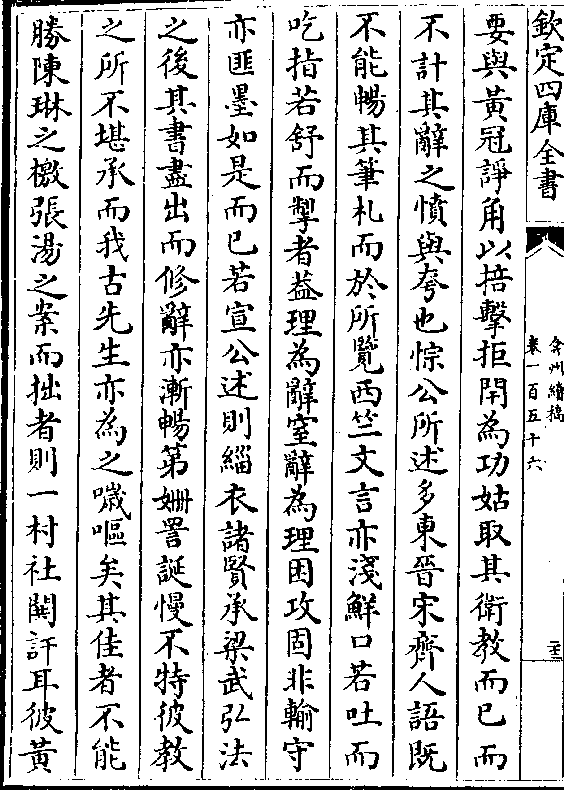 欽定四庫全書
弇州續稿
卷一百五十六
二十三
要與黃冠諍角以掊擊拒閉為功姑取其衛教而已而
不計其辭之憤與夸也悰公所述多東晉宋齊人語既
不能暢其筆札而於所覽西竺文言亦淺鮮口若吐而
吃指若舒而掣者益理為辭窒辭為理困攻固非輸守
亦匪墨如是而已若宣公述則緇衣諸賢承梁武弘法
之後其書盡出而修辭亦漸暢第姍詈誕慢不特彼教
之所不堪承而我古先生亦為之噦嘔矣其佳者不能
勝陳琳之檄張湯之案而拙者則一村社鬬訐耳彼黃